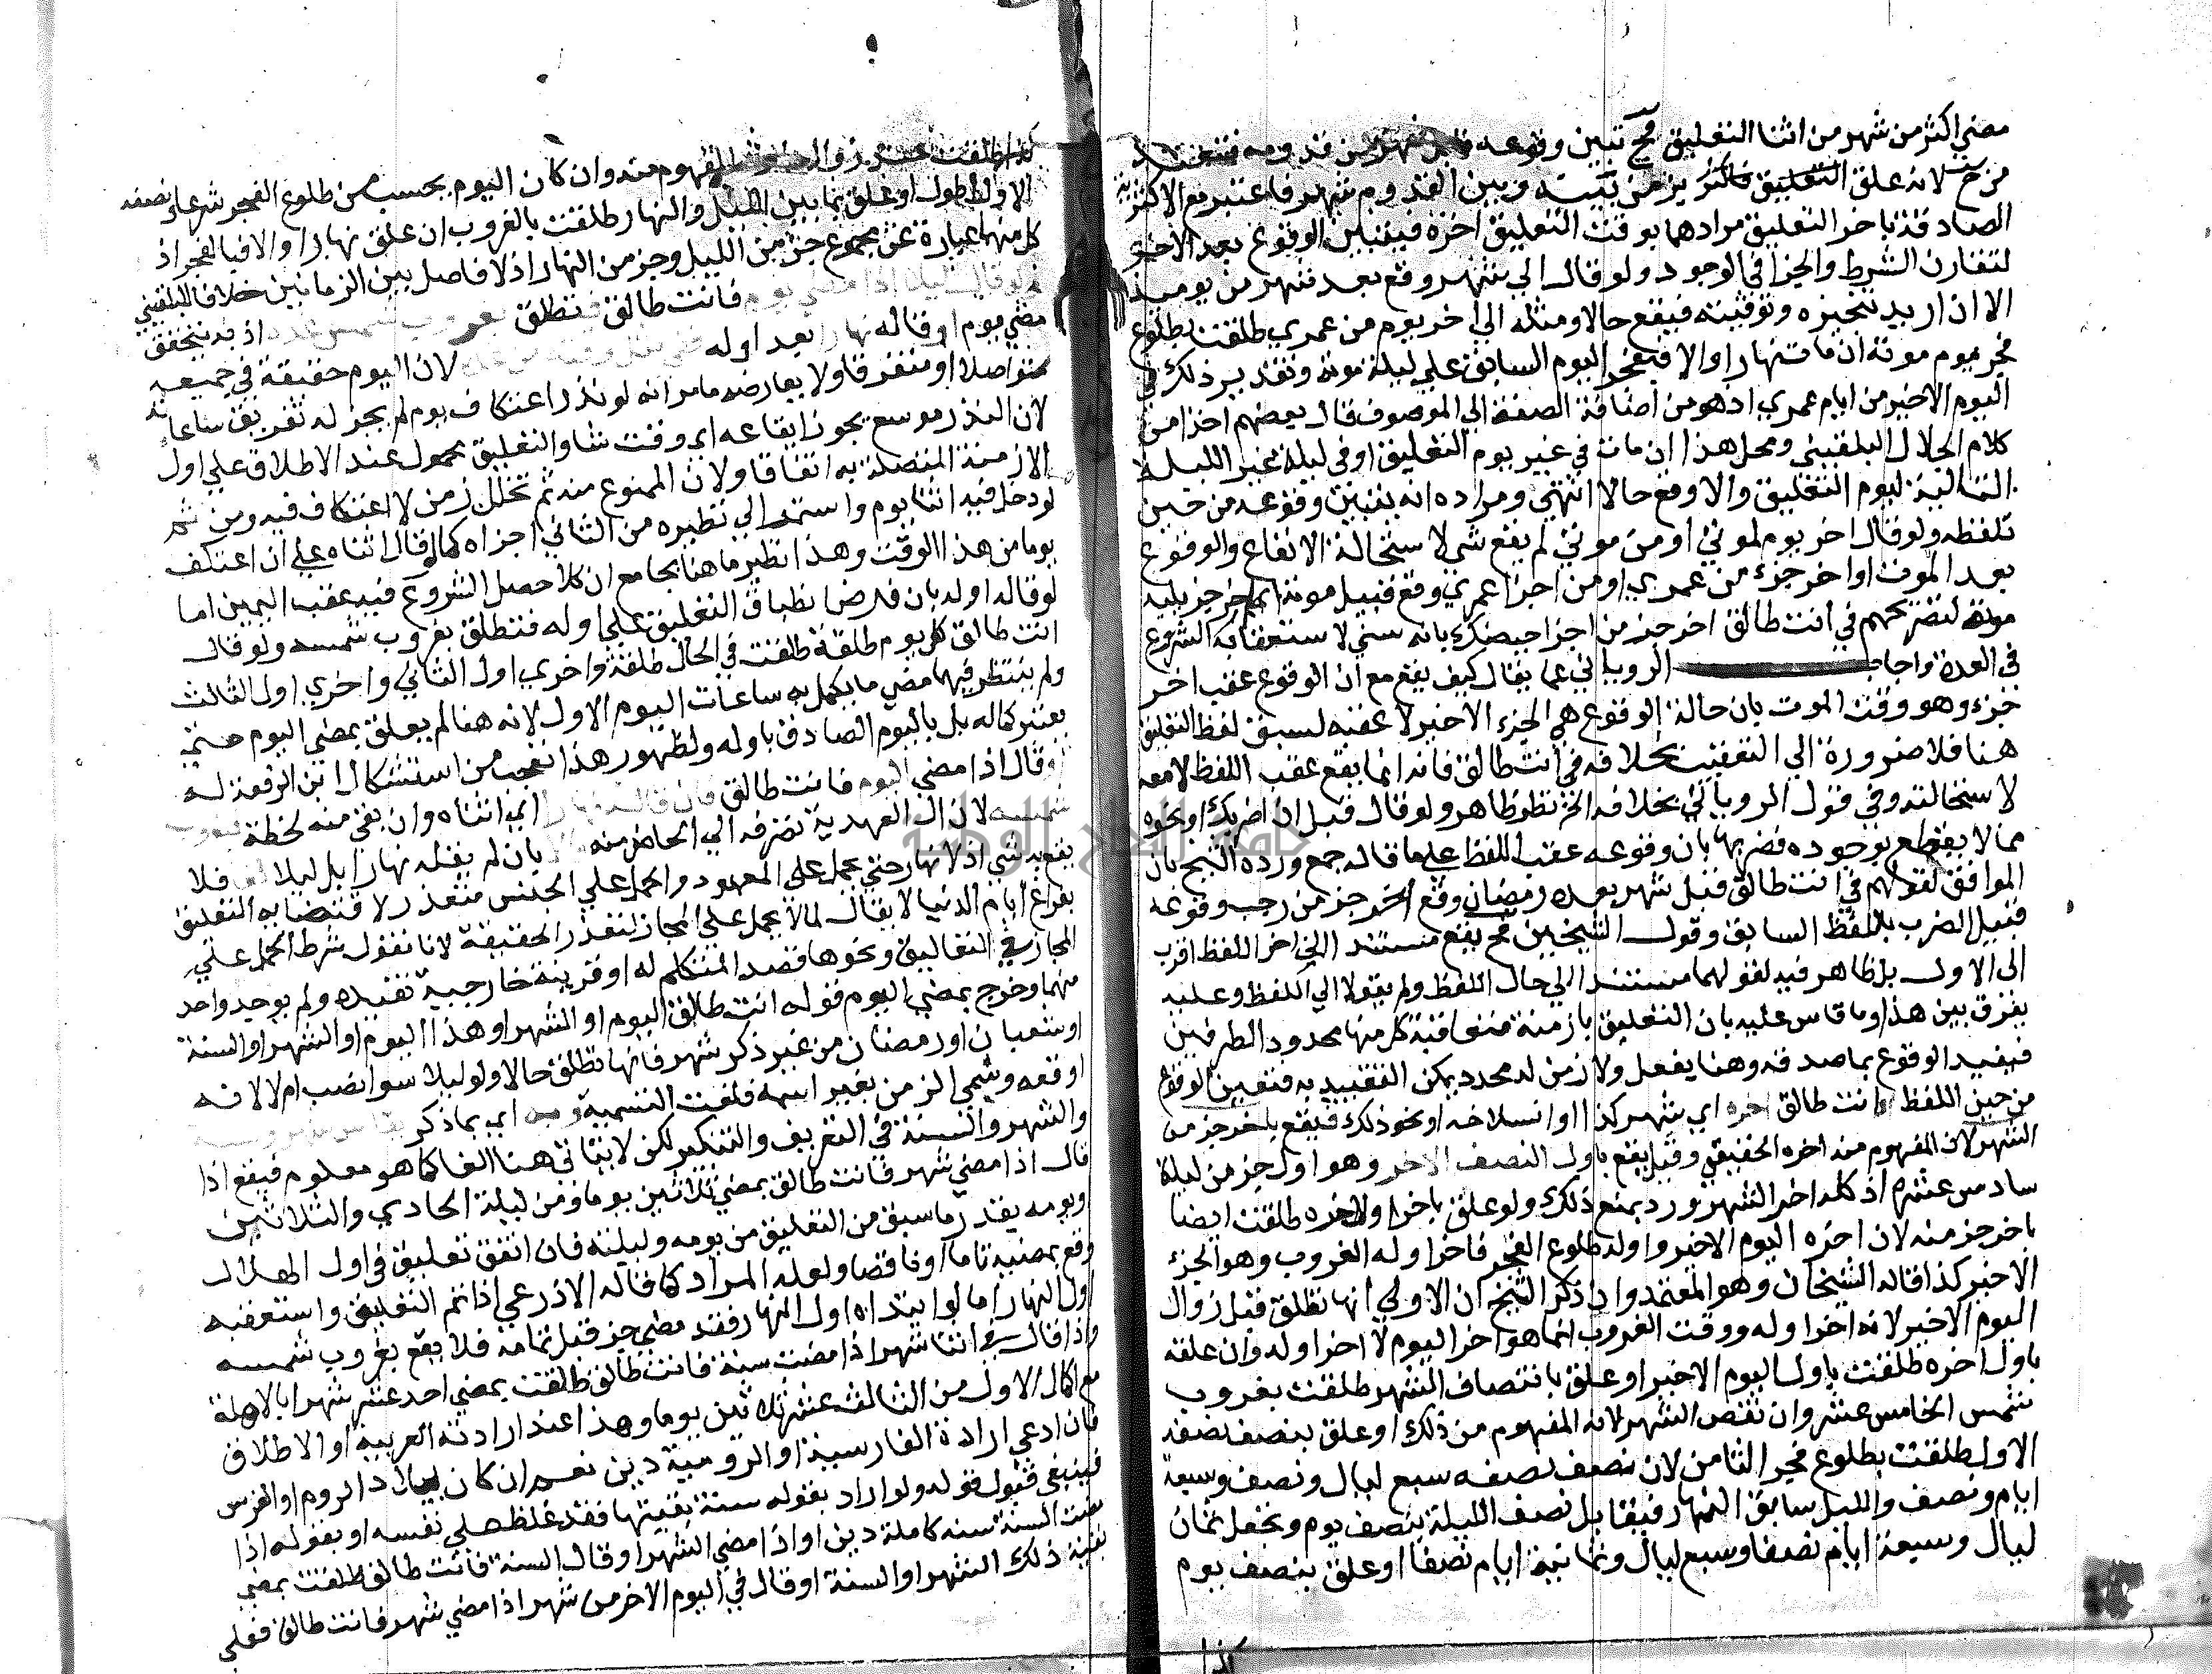 مضي اكثر من شهر من اثنا التعليق فح تبين وقوعه قبل شهر من قدومه فتعتد
من ح لانه علق التعليق فاكثر بزمن بينه وبين القدوم شهر فاعتبر مع الاكثرية
الصادقة باخر التعليق مرادهما بوقت التعليق اخره فيتبين الوقوع بعد الاخر
لتقارن الشرط والجزا في الوجود ولو قال الي شهر وقع بعد شهر من يوميذ
الا ان اريد تنجيزه وتوقيته فيقع حالا ومثله الي اخر يوم من عمري طلقت بطلوع
فجر يوم موته ان مات نهارا والا فبفجر اليوم السابق علي ليلة موته وتقدير ذلك في
اليوم الاخير من ايام عمري اذ هو من اضافة الصفة الي الموصوف قال بعضهم اخذا من
كلام الجلال البلقيني ومحل هذا ان مات في غير يوم التعليق او في ليلة غير الليلة
التالية ليوم التعليق والا وقع حالا انتهي ومراده انه يتبين وقوعه من حين
تلفظه ولو قال اخر يوم لموتي او من موتي لم يقع شي لاستحالة الايقاع والوقوع
بعد الموت او اخر جزء من عمري او من اجزا عمري وقع قبيل موته اي اخر جز يليه
موته لتصريحهم في انت طالق اخر جز من اجزا حيضك بانه سني لاستعقابه الشروع
في العدة واجاب الروياني عما يقال كيف يقع مع ان الوقوع عقب اخر
جزء وهو وقت الموت بان حالة الوقوع هي الجزء الاخير لا عقبه لسبق لفظ التعليق
هنا فلا ضرورة الي التعقيب بخلافه في انت طالق فانه انما يقع عقب اللفظ لا معه
لاستحالته وفي قول الروياني بخلافه الخ نظر ظاهر ولو قال قبل ان اضربك او نحوه
مما لا يقطع بوجوده فضربها بان وقوعه عقب اللفظ علي ما قاله جمع ورده الشيخ بان
الموافق لقولهم في انت طالق قبل شهر بعده رمضان وقع اخر جز من رجب وقوعه
قبيل الضرب باللفظ السابق وقول الشيخين فح يقع مستندا الي اخر اللفظ اقرب
الي الاول بل ظاهر فيه لقولهما مستندا الي حال اللفظ ولم يقولا الي اللفظ وعليه
يفرق بين هذا وما قاس عليه بان التعليق بازمنة متعاقبة كل منها محدود الطرفين
فيقيد الوقوع بما صدقه وهنا بفعل ولا زمن له محدد يمكن التقييد به فتعين الوقوع
من حين اللفظ وانت طالق اخره اي شهر كذا او انسلاخه او نحو ذلك فيقع باخر جز من
الشهر لان المفهوم منه اخره الحقيقي وقيل يقع باول النصف الاخر وهو اول جز من ليلة
سادس عشره اذ كله اخر الشهر ورد بمنع ذلك ولو علق باخر اول اخره طلقت ايضا
باخر جز منه لان اخره اليوم الاخير واوله طلوع الفجر فاخر اوله الغروب وهو الجزء
الاخير كذا قاله الشيخان وهو المعتمد وان ذكر الشيخ ان الاولي انها تطلق قبل زوال
اليوم الاخير لانه اخر اوله ووقت الغروب انما هو اخر اليوم لا اخر اوله وان علقه
باول اخره طلقت باول اليوم الاخير او علق بانتصاف الشهر طلقت بغروب
شمس الخامس عشر وان نقص الشهر لانه المفهوم من ذلك او علق بنصف نصفه
الاول طلقت بطلوع فجر الثامن لان نصف نصفه سبع ليال ونصف وسبعة
ايام ونصف والليل سابق النهار فيقابل نصف الليلة بنصف يوم ويجعل ثمان
ليال وسبعة ايام نصفا وسبع ليال وثمانية ايام نصفا او علق بنصف يوم
كذا
كذا طلقت عند زواله لانه المفهوم منه وان كان اليوم يحسب من طلوع الفجر شرعا ونصفه
الاول اطول او علق بما بين الليل والنهار طلقت بالغروب ان علق نهارا والا فبالفجر اذ
كل منهما عبارة عن مجموع جزء من الليل وجز من النهار اذ لا فاصل بين الزمانين خلافا للبلقيني
ولو قال ليلا اذا مضي يوم فانت طالق فتطلق بغروب شمس غده اذ به يتحقق
مضي يوم او قاله نهارا بعد اوله ففي مثل وقته من غده لان اليوم حقيقة في جميعه
متواصلا او متفرقا ولا يعارضه ما مر انه لو نذر اعتكاف يوم لم يجز له تفريق ساعاته
لان النذر موسع يجوز ايقاعه اي وقت شا والتعليق محمول عند الاطلاق علي اول
الازمنة المتصلة به اتفاقا ولان الممنوع منه ثم تخلل زمن لا اعتكاف فيه ومن ثم
لو دخل فيه اثنا يوم واستمر الي نظيره من الثاني اجزاه كما لو قال اثناه علي ان اعتكف
يوما من هذا الوقت وهذا نظير ما هنا بجامع ان كلا حصل الشروع فيه عقب اليمين اما
لو قاله اوله بان فرض انطباق التعليق علي اوله فتطلق بغروب شمسه ولو قال
انت طالق كل يوم طلقة طلقت في الحال طلقة واخري اول الثاني واخري اول الثالث
ولم ينتظر فيهما مضي ما يكمل به ساعات اليوم الاول لانه هنا لم يعلق بمضي اليوم حتي
يعتبر كماله بل باليوم الصادق باوله ولظهور هذا تعجب من استشكال ابن الرفعة له
او قال اذا مضي اليوم فانت طالق فان قاله نهارا اي اثناه وان بقي منه لحظة فبغروب
شمسه لان ال العهدية تصرفه الي الحاضر منه والا بان لم يقله نهارا بل ليلا لغا فلا
يقع به شي اذ لا نهار حتي يحمل علي المعهود والحمل علي الجنس متعذر لاقتضايه التعليق
بفراغ ايام الدنيا لا يقال لم لا يحمل علي المجاز لتعذر الحقيقة لانا نقول شرط الحمل علي
المجاز في التعاليق ونحوها قصد المتكلم له او قرينة خارجية تفيده ولم يوجد واحد
منهما وخرج بمضي اليوم قوله انت طالق اليوم او الشهر او هذا اليوم او الشهر او السنة
او شعبان او رمضان من غير ذكر شهر فانها تطلق حالا ولو ليلا سوا نصب ام لا لانه
اوقعه وسمي الزمن بغير اسمه فلغت التسمية وبه اي بما ذكر يقاس شهر وسنة
والشهر والسنة في التعريف والتنكير لكن لا يتاتي هنا الغا كما هو معلوم فيقع اذا
قال اذا مضي شهر فانت طالق بمضي ثلاثين يوما ومن ليلة الحادي والثلاثين
ويومه بقدر ما سبق من التعليق من يومه وليلته فان اتفق تعليق في اول الهلال
وقع بمضيه تاما او ناقصا ولعله المراد كما قاله الاذرعي اذا تم التعليق واستعقبه
اول النهار اما لو ابتداه اول النهار فقد مضي جز قبل تمامه فلا يقع بغروب شمسه
واذا قال في اثنا شهر اذا مضت سنة فانت طالق طلقت بمضي احد عشر شهرا بالاهلة
مع اكمال الاول من الثالث عشر ثلاثين يوما وهذا عند ارادته العربية او الاطلاق
فان ادعي ارادة الفارسية او الرومية دين نعم ان كان ببلاد الروم او الفرس
فينبغي قبول قوله ولو اراد بقوله سنة بقيتها فقد غلظ علي نفسه او بقوله اذا
مضت السنة سنه كاملة دين او اذا مضي الشهر او قال السنة فانت طالق طلقت بمضي
بقية ذلك الشهر او السنة او قال في اليوم الاخر من شهر اذا مضي شهر فانت طالق فعلي